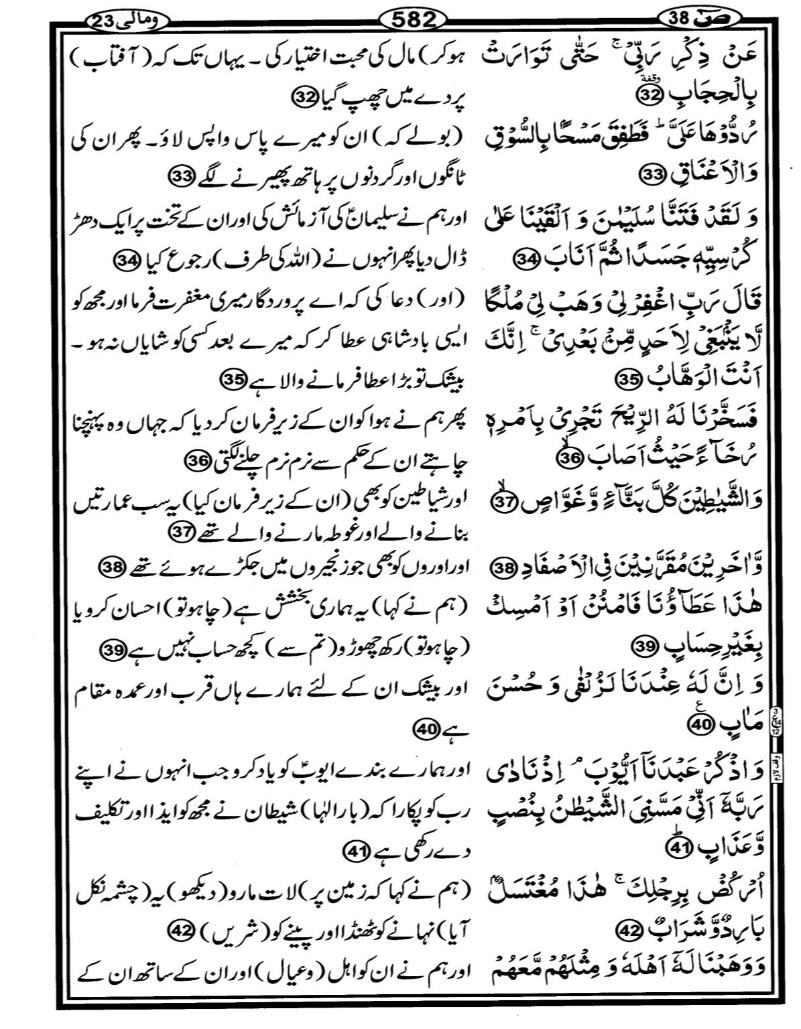 صٓ 38
582
ومالی 23
عَنۡ ذِكۡرِ رَبِّىۡ‌ۚ حَتّٰى تَوَارَتۡ
بِالۡحِجَابِ 32
رُدُّوۡهَا عَلَىَّ ؕ فَطَفِقَ مَسۡحًۢا بِالسُّوۡقِ
وَالۡاَعۡنَاقِ 33
وَلَقَدۡ فَتَنَّا سُلَيۡمٰنَ وَاَلۡقَيۡنَا عَلٰى
كُرۡسِيِّهٖ جَسَدًا ثُمَّ اَنَابَ 34
قَالَ رَبِّ اغۡفِرۡ لِىۡ وَهَبۡ لِىۡ مُلۡكًا
لَّا يَنۡۢبَغِىۡ لِاَحَدٍ مِّنۡۢ بَعۡدِىۡ‌ۚ اِنَّكَ
اَنۡتَ الۡوَهَّابُ 35
فَسَخَّرۡنَا لَهُ الرِّيۡحَ تَجۡرِىۡ بِاَمۡرِهٖ
رُخَآءً حَيۡثُ اَصَابَ 36
وَالشَّيٰطِيۡنَ كُلَّ بَنَّآءٍ وَّغَوَّاصٍ 37
وَّاٰخَرِيۡنَ مُقَرَّنِيۡنَ فِى الۡاَصۡفَادِ 38
هٰذَا عَطَآؤُنَا فَامۡنُنۡ اَوۡ اَمۡسِكۡ
بِغَيۡرِ حِسَابٍ 39
وَاِنَّ لَهٗ عِنۡدَنَا لَزُلۡفٰى وَحُسۡنَ
مَاٰبٍ 40
وَاذۡكُرۡ عَبۡدَنَاۤ اَيُّوۡبَ‌ۘ اِذۡ نَادٰى
رَبَّهٗۤ اَنِّىۡ مَسَّنِىَ الشَّيۡطٰنُ بِنُصۡبٍ
وَّعَذَابٍ 41
اُرۡكُضۡ بِرِجۡلِكَ‌ۚ هٰذَا مُغۡتَسَلٌۢ
بَارِدٌ وَّشَرَابٌ 42
وَوَهَبۡنَا لَهٗۤ اَهۡلَهٗ وَمِثۡلَهُمۡ مَّعَهُمۡ
ہوکر) مال کی محبت اختیار کی ۔ یہاں تک کہ (آفتاب)
پردے میں چھپ گیا 32
(بولے کہ) ان کو میرے پاس واپس لاؤ۔ پھر ان کی
ٹانگوں اور گردنوں پر ہاتھ پھیرنے لگے 33
اور ہم نے سلیمانؑ کی آزمائش کی اور ان کے تخت پر ایک دھڑ
ڈال دیا پھر انہوں نے (اللہ کی طرف) رجوع کیا 34
(اور) دعا کی کہ اے پروردگار میری مغفرت فرما اور مجھ کو
ایسی بادشاہی عطا کر کہ میرے بعد کسی کو شایاں نہ ہو ۔
بیشک تو بڑا عطا فرمانے والا ہے 35
پھر ہم نے ہوا کو ان کے زیر فرمان کر دیا کہ جہاں وہ پہنچنا
چاہتے ان کے حکم سے نرم نرم چلنے لگتی 36
اور شیاطین کو بھی (ان کے زیر فرمان کیا) یہ سب عمارتیں
بنانے والے اور غوطہ مارنے والے تھے 37
اور اوروں کو بھی جو زنجیروں میں جکڑے ہوئے تھے 38
(ہم نے کہا) یہ ہماری بخشش ہے (چاہو تو) احسان کرو یا
(چاہو تو) رکھ چھوڑو (تم سے) کچھ حساب نہیں ہے 39
اور بیشک ان کے لئے ہمارے ہاں قرب اور عمدہ مقام
ہے 40
اور ہمارے بندے ایوبؑ کو یاد کرو جب انہوں نے اپنے
رب کو پکارا کہ (بار الہا) شیطان نے مجھ کو ایذا اور تکلیف
دے رکھی ہے 41
(ہم نے کہا کہ زمین پر) لات مارو (دیکھو) یہ (چشمہ نکل
آیا) نہانے کو ٹھنڈا اور پینے کو (شریں) 42
اور ہم نے ان کو اہل (وعیال) اور ان کے ساتھ ان کے
وقف لازم